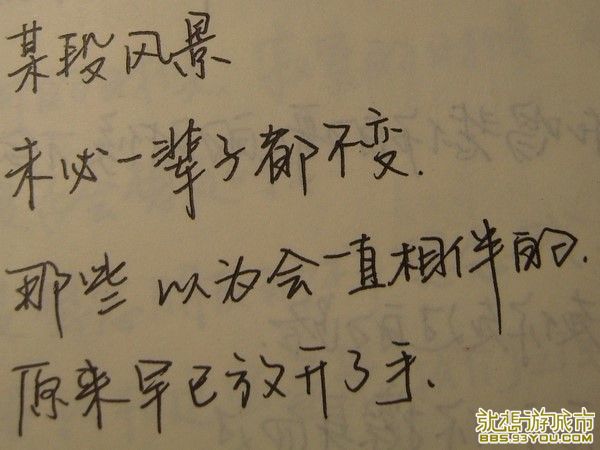 某段风景
未必一辈子都不变.
那些以为会一直相伴的.
原来早已放开了手.
BBS.93YOU.COM